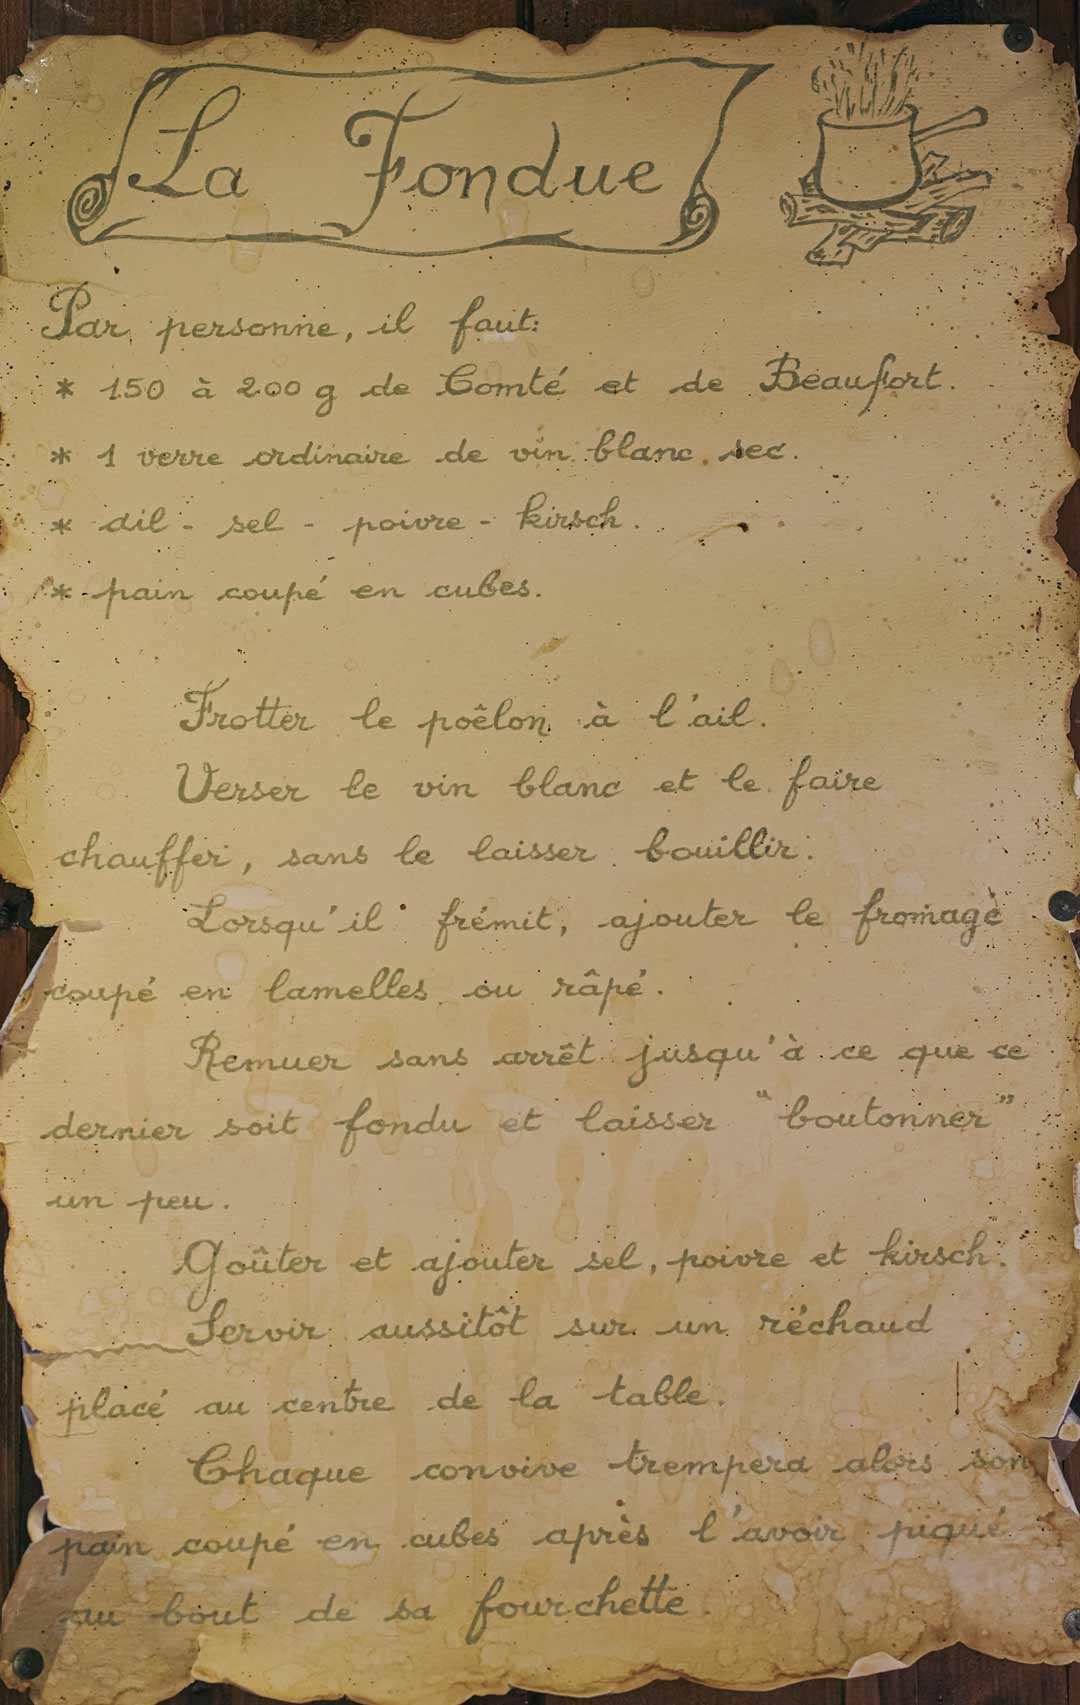 La Fondue
Par personne, il faut:
* 150 à 200 g de Comté et de Beaufort.
* 1 verre ordinaire de vin blanc sec.
* ail - sel - poivre - kirsch.
* pain coupé en cubes.
Frotter le poêlon à l'ail.
Verser le vin blanc et le faire
chauffer, sans le laisser bouillir.
Lorsqu'il frémit, ajouter le fromage
coupé en lamelles ou râpé.
Remuer sans arrêt jusqu'à ce que ce
dernier soit fondu et laisser "boutonner"
un peu.
Goûter et ajouter sel, poivre et kirsch.
Servir aussitôt sur un réchaud
placé au centre de la table.
Chaque convive trempera alors son
pain coupé en cubes après l'avoir piqué
au bout de sa fourchette.